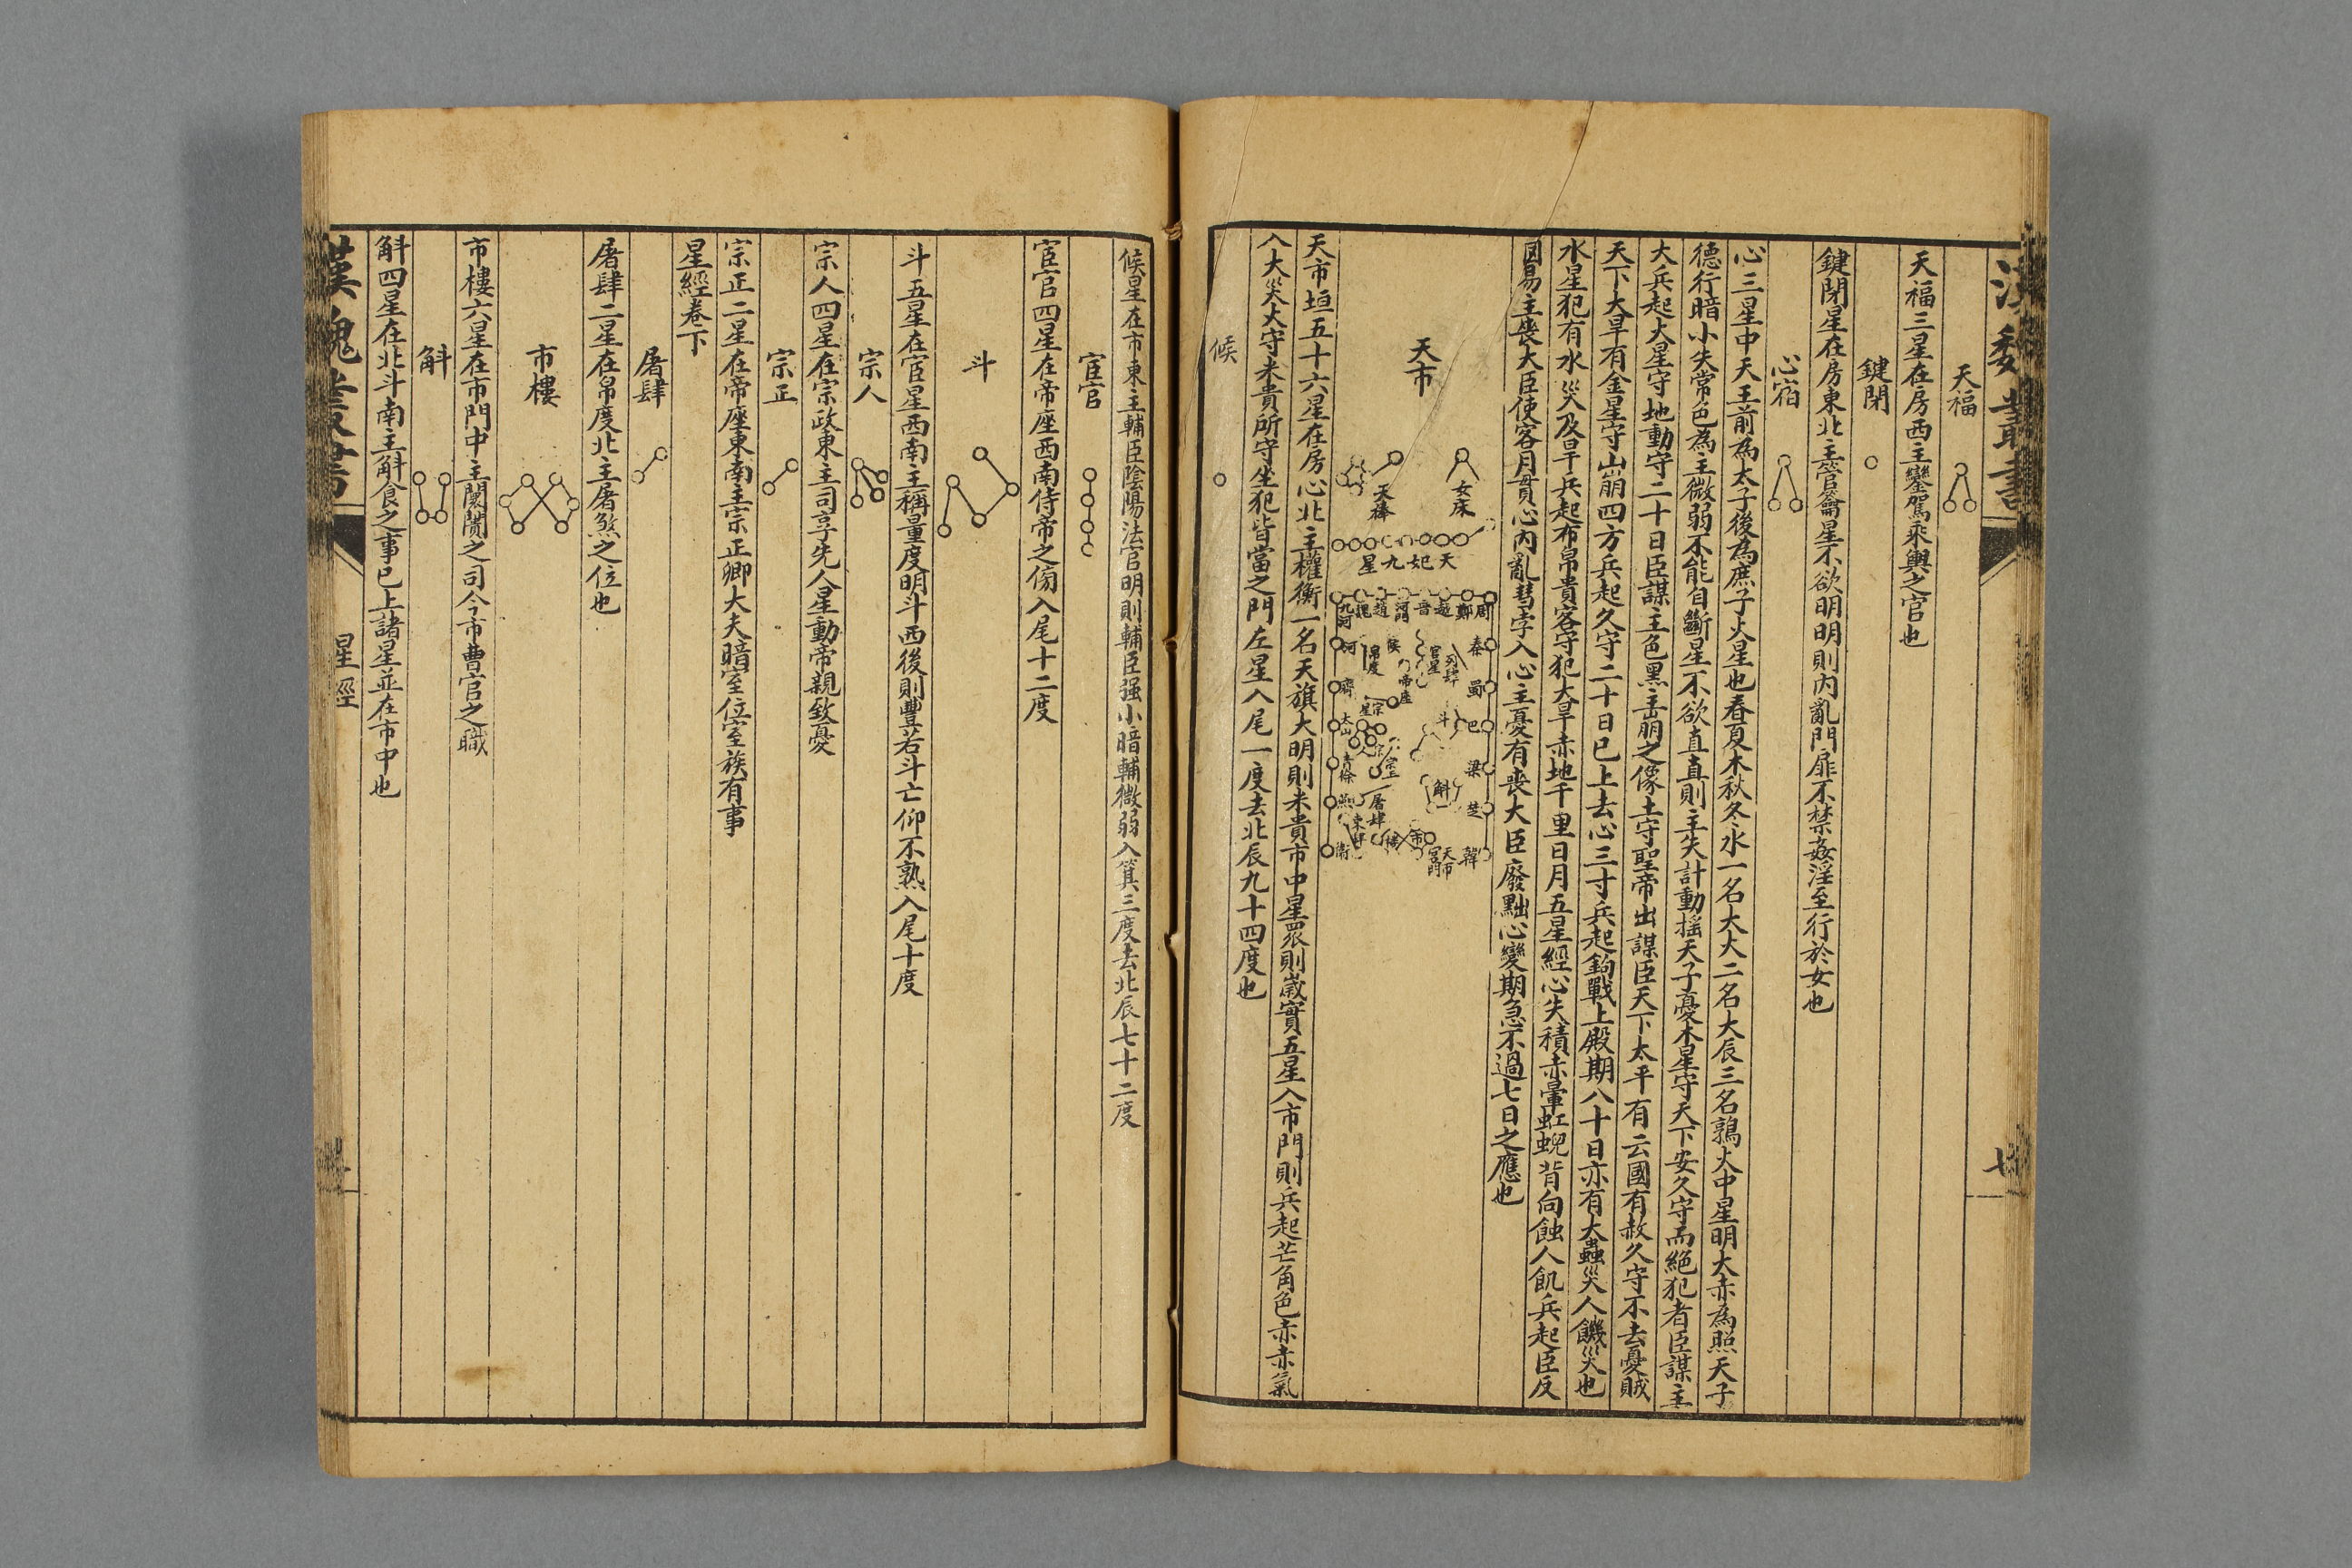 天福
天福三星在房西主鑾駕乘輿之官也
鍵閉
鍵閉星在房東北主管籥星不欲明明則內亂門扉不禁姦淫至行於女也
心宿
心三星中天王前為太子後為庶子火星也春夏木秋冬水一名大火二名大辰三名鶉火中星明大赤為照天子
德行暗小失常色為主微弱不能自斷星不欲直直則主失計動搖天子憂木星守天下安久守而絕犯者臣謀主
大兵起大星守地動守二十日臣謀主色黑主崩之像土守聖帝出謀臣天下太平有云國有赦久守不去憂賊
天下大旱有金星守山崩四方兵起久守二十日已上去心三寸兵起鉤戰上殿期八十日亦有大蟲災人饑災也
水星犯有水災及旱兵起布帛貴客守犯大旱赤地千里日月五星經心失積赤暈虹蜺背向蝕人飢兵起臣反
國易主喪大臣使客月貫心內亂彗孛入心主憂有喪大臣廢黜心變期急不過七日之應也
天市
女床
天棓
天妃九星
周
鄭
晉
趙
九河
秦
蜀
巴
梁
楚
韓
列肆
宦星
候
帝座
帛度
斗
斛
屠肆
天市宮門
衛
天市垣五十六星在房心北主權衡一名天旗大明則米貴市中星眾則歲實五星入市門則兵起芒角色赤赤氣
入大災火守米貴所守坐犯皆當之門左星入尾一度去北辰九十四度也
候
候星在市東主輔臣陰陽法官明則輔臣强小暗輔微弱入箕三度去北辰七十二度
宦官
宦官四星在帝座西南侍帝之傍入尾十二度
斗
斗五星在宦星西南主稱量度明斗西後則豐若斗亡仰不熟入尾十度
宗人
宗人四星在宗政東主司享先人星動帝親致憂
宗正
宗正二星在帝座東南主宗正卿大夫暗室位室族有事
星經卷下
屠肆
屠肆二星在帛度北主屠煞之位也
市樓
市樓六星在市門中主闤闠之司今市曹官之職
斛
斛四星在北斗南主斛食之事已上諸星並在市中也
星經